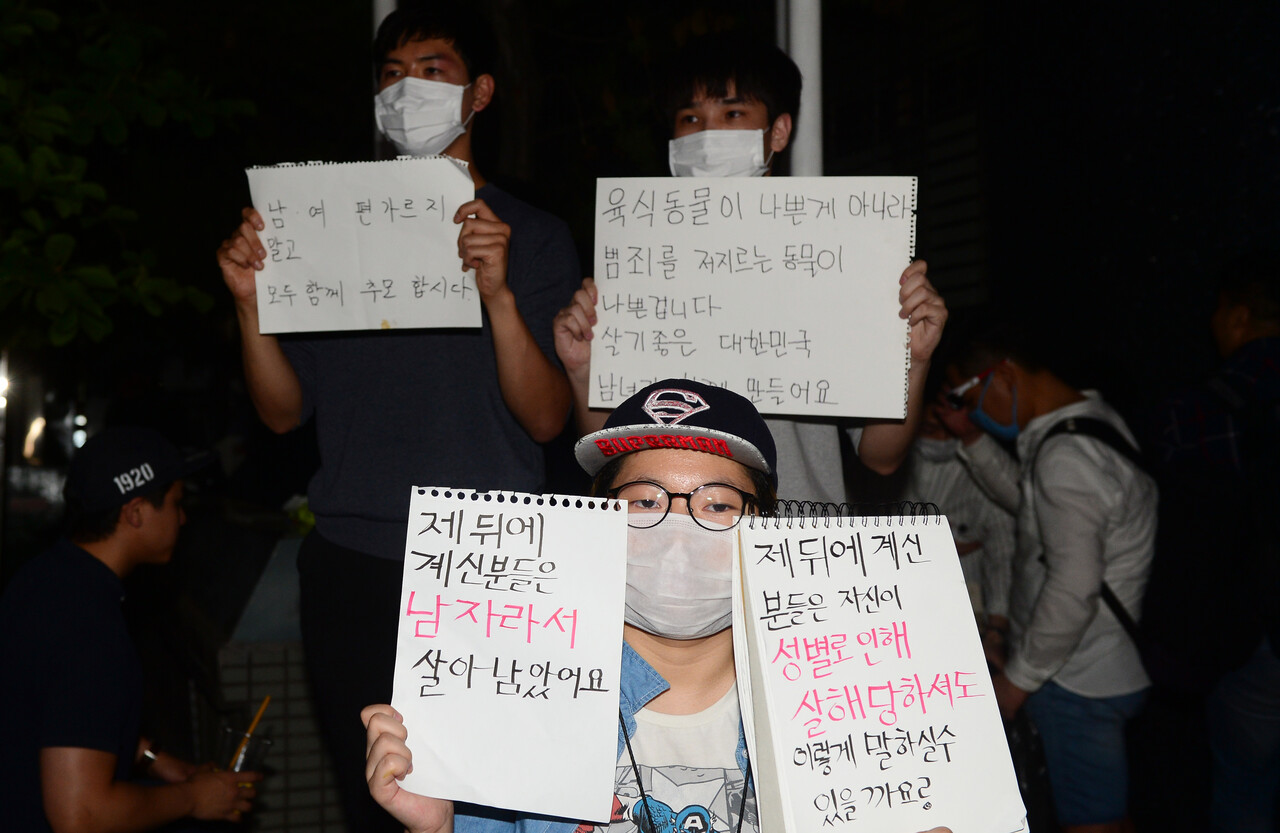 남 여 편가르지
말고
모두 함께 추모 합시다.
육식동물이 나쁜게 아니라
범죄를 저지르는 동물이
나쁜겁니다
살기좋은 대한민국
만들어요
SUPERMAN
1920
제 뒤에
계신분들은
남자라서
살아남았어요
제 뒤에 계신
분들은 자신이
성별로 인해
살해당하셔도
이렇게 말하실수
있을까요?